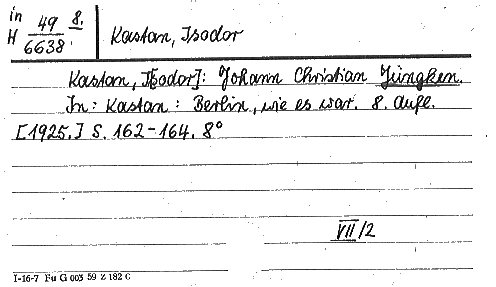 in
H 49 8.
6638
Kastan, Isodor
Kastan, I[sodor]: Johann Christian Jüngken.
In: Kastan: Berlin, wie es war. 8. Aufl.
[1925.] S. 162-164. 8°
VII/2
I-16-7 Fu G 003 59 Z 182 C